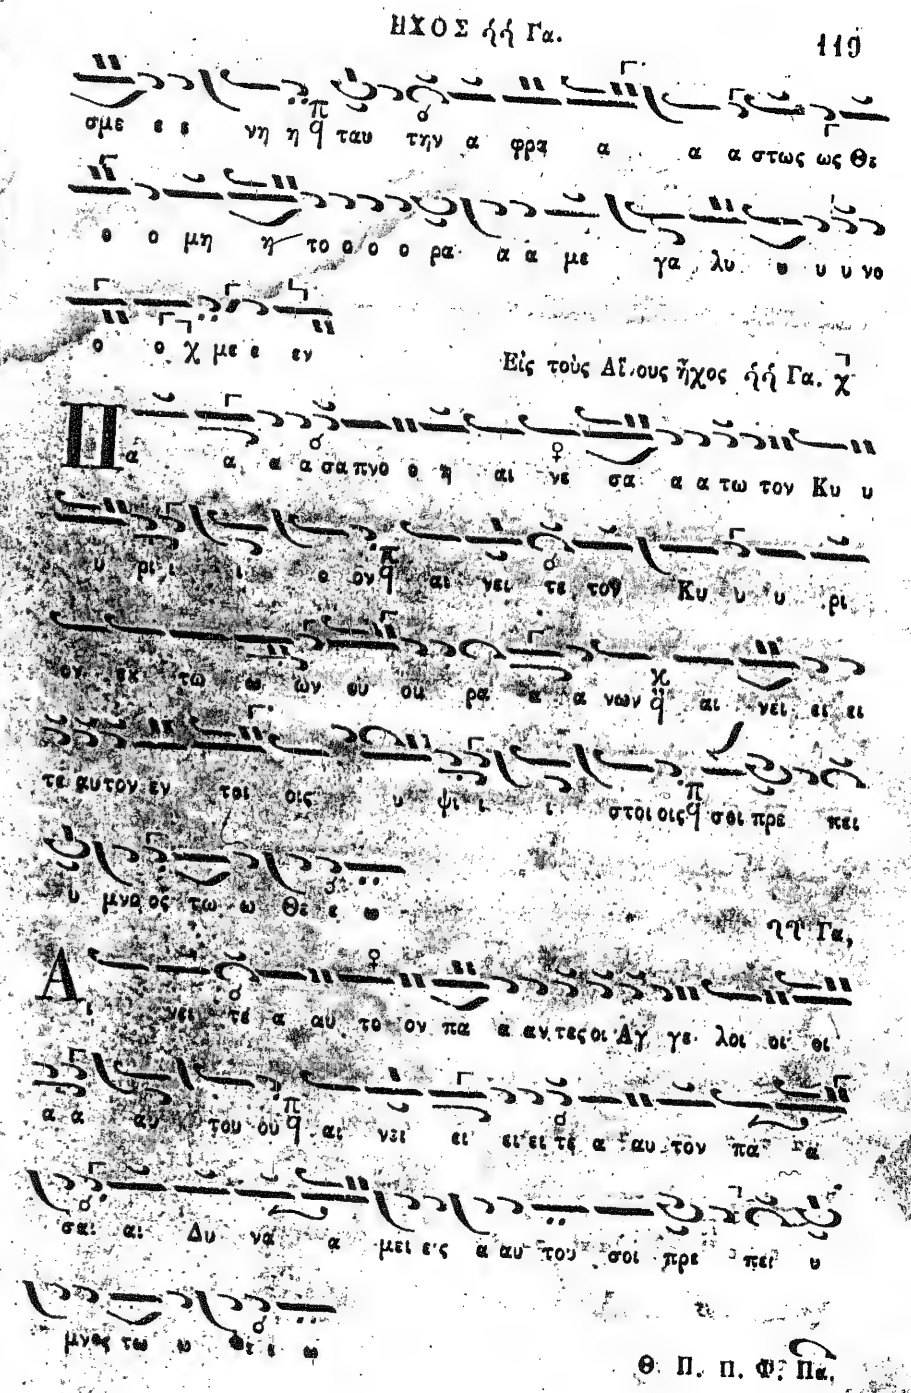 ΗΧΟΣ ἡἡ Γα.
119
σμε ε ε νη η ταυ την α φρα α α α στως ως Θε
ο ο μη η το ο ο ο ρα α α με γα λυ υ υ υ νο
ο ο χ με ε εν
Εἰς τοὺς ἦχος ἡἡ Γα.
Πα α α α σα πνο ο η αι νε σα α α τω τον Κυ υ
υ ρι ι ι ο ον αι νει τε τον Κυ υ υ ρι
ον εκ τω ω ων ου ου ρα α α νων αι νει ει ει
τε αυτον εν τοι οις υ ψι ι ι στοι οις σοι πρε πει
υ μνο ος τω ω Θε ε ω
Γα,
Αι νει τε α αυ το ον πα α αν τες οι Αγ γε λοι οι οι
α α αυ του ου αι νει ει ει ει τε α αυ τον πα α
σαι αι Δυ να α μει εις α αυ του σοι πρε πει υ
μνος τω ω Θε ε ω
Θ. Π. Π. Φ. Πα.